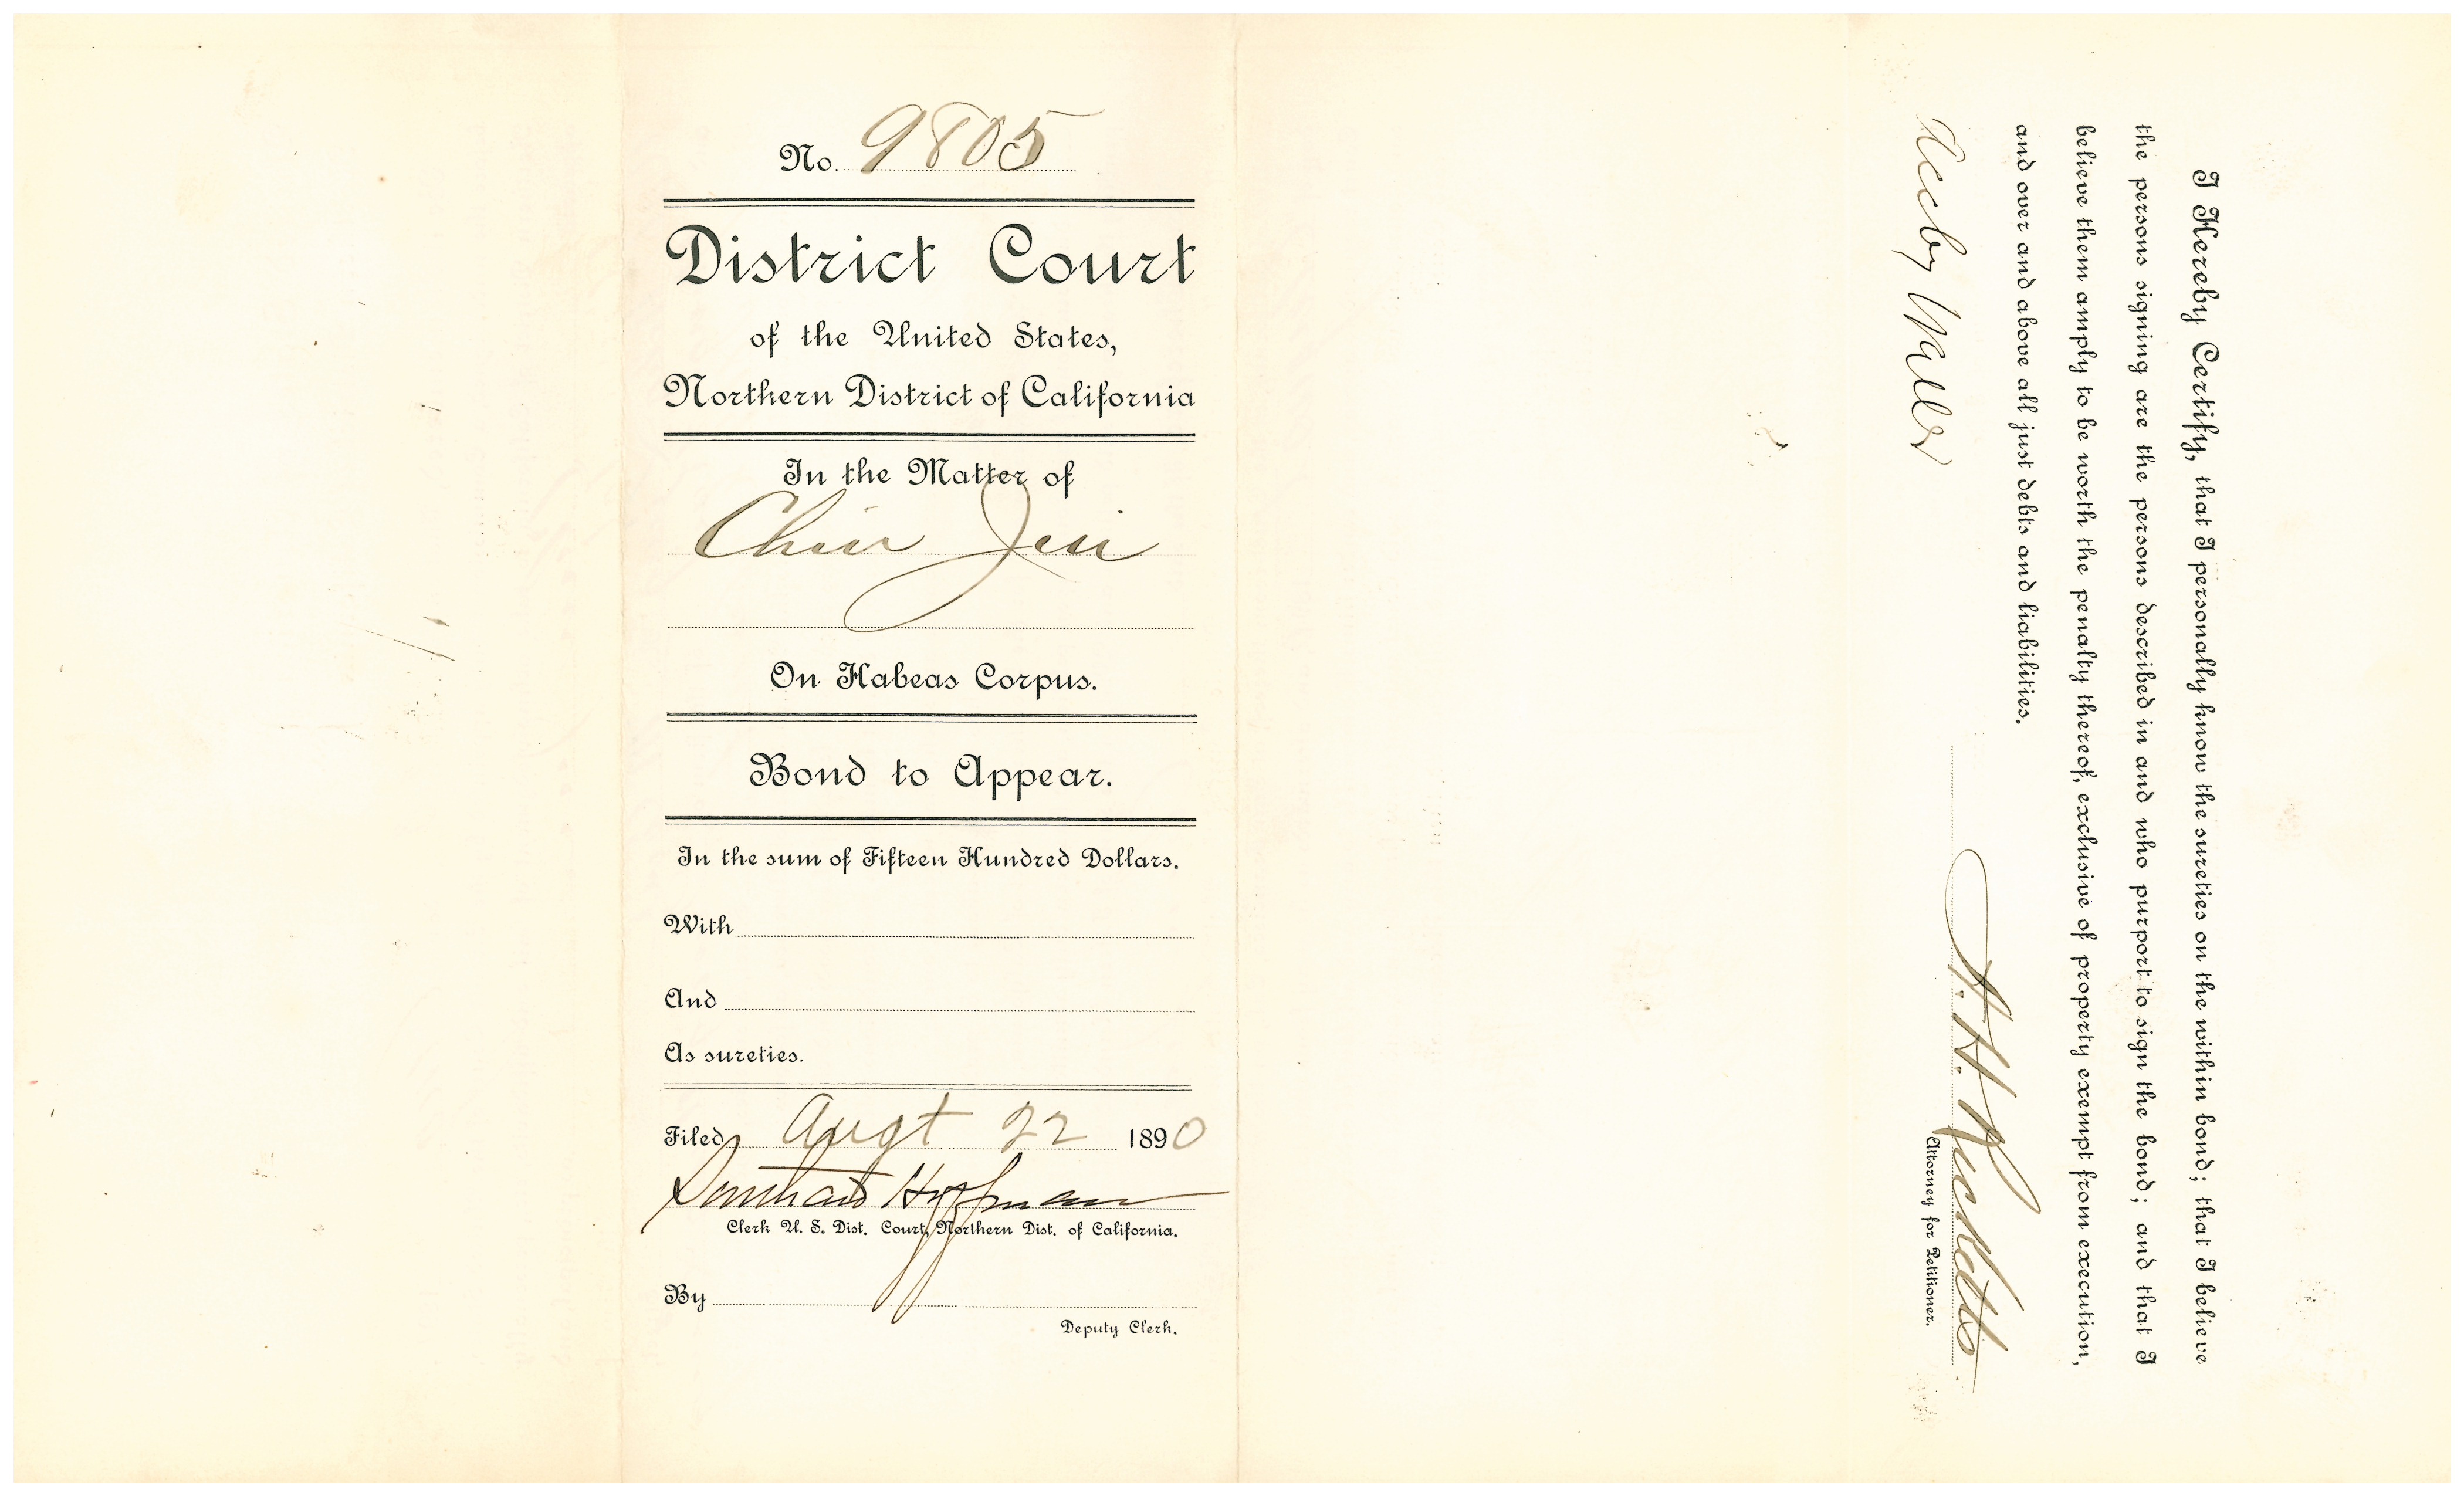 No. 9805
District Court
of the United States,
Northern District of California
In the Matter of
Chin Jin
On Habeas Corpus.
Bond to Appear.
In the sum of Fifteen Hundred Dollars.
With
And
As sureties.
Filed Augt 22 1890
Southard Hoffman
Clerk U. S. Dist. Court, Northern Dist. of California.
By
Deputy Clerk.
I Hereby Certify, that I personally know the sureties on the within bond; that I believe
the persons signing are the persons described in and who purport to sign the bond; and that I
believe them amply to be worth the penalty thereof, exclusive of property exempt from execution,
and over and above all just debts and liabilities.
A. H. Ricketts
Attorney for Petitioner.